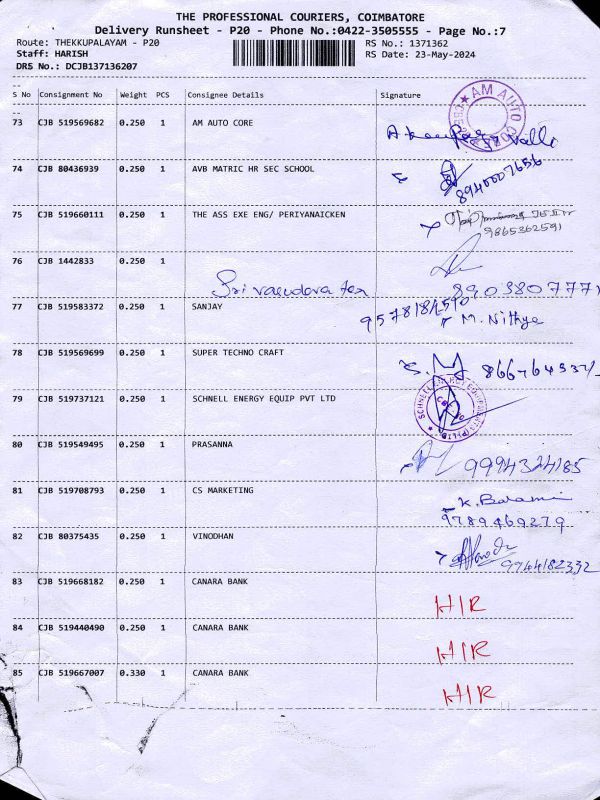 THE PROFESSIONAL COURIERS, COIMBATORE
Delivery Runsheet - P20 - Phone No.:0422-3505555 - Page No.:7
Route: THEKKUPALAYAM - P20 RS No.: 1371362
Staff: HARISH RS Date: 23-May-2024
DRS No.: DCJB137136207
S No Consignment No Weight PCS Consignee Details Signature
73 CJB 519569682 0.250 1 AM AUTO CORE
AM AUTO
74 CJB 80436939 0.250 1 AVB MATRIC HR SEC SCHOOL 8940007656
75 CJB 519660111 0.250 1 THE ASS EXE ENG/ PERIYANAICKEN
9865362591
76 CJB 1442833 0.250 1
Sri vasudova tex 890380777
77 CJB 519583372 0.250 1 SANJAY
M. Nithya
78 CJB 519569699 0.250 1 SUPER TECHNO CRAFT
79 CJB 519737121 0.250 1 SCHNELL ENERGY EQUIP PVT LTD
SCHNELL ENERGY EQUIPMENTS (P) LTD
80 CJB 519549495 0.250 1 PRASANNA 9994324185
81 CJB 519708793 0.250 1 CS MARKETING
9789469279
82 CJB 80375435 0.250 1 VINODHAN
9944182332
83 CJB 519668182 0.250 1 CANARA BANK H/R
84 CJB 519440490 0.250 1 CANARA BANK H/R
85 CJB 519667007 0.330 1 CANARA BANK H/R